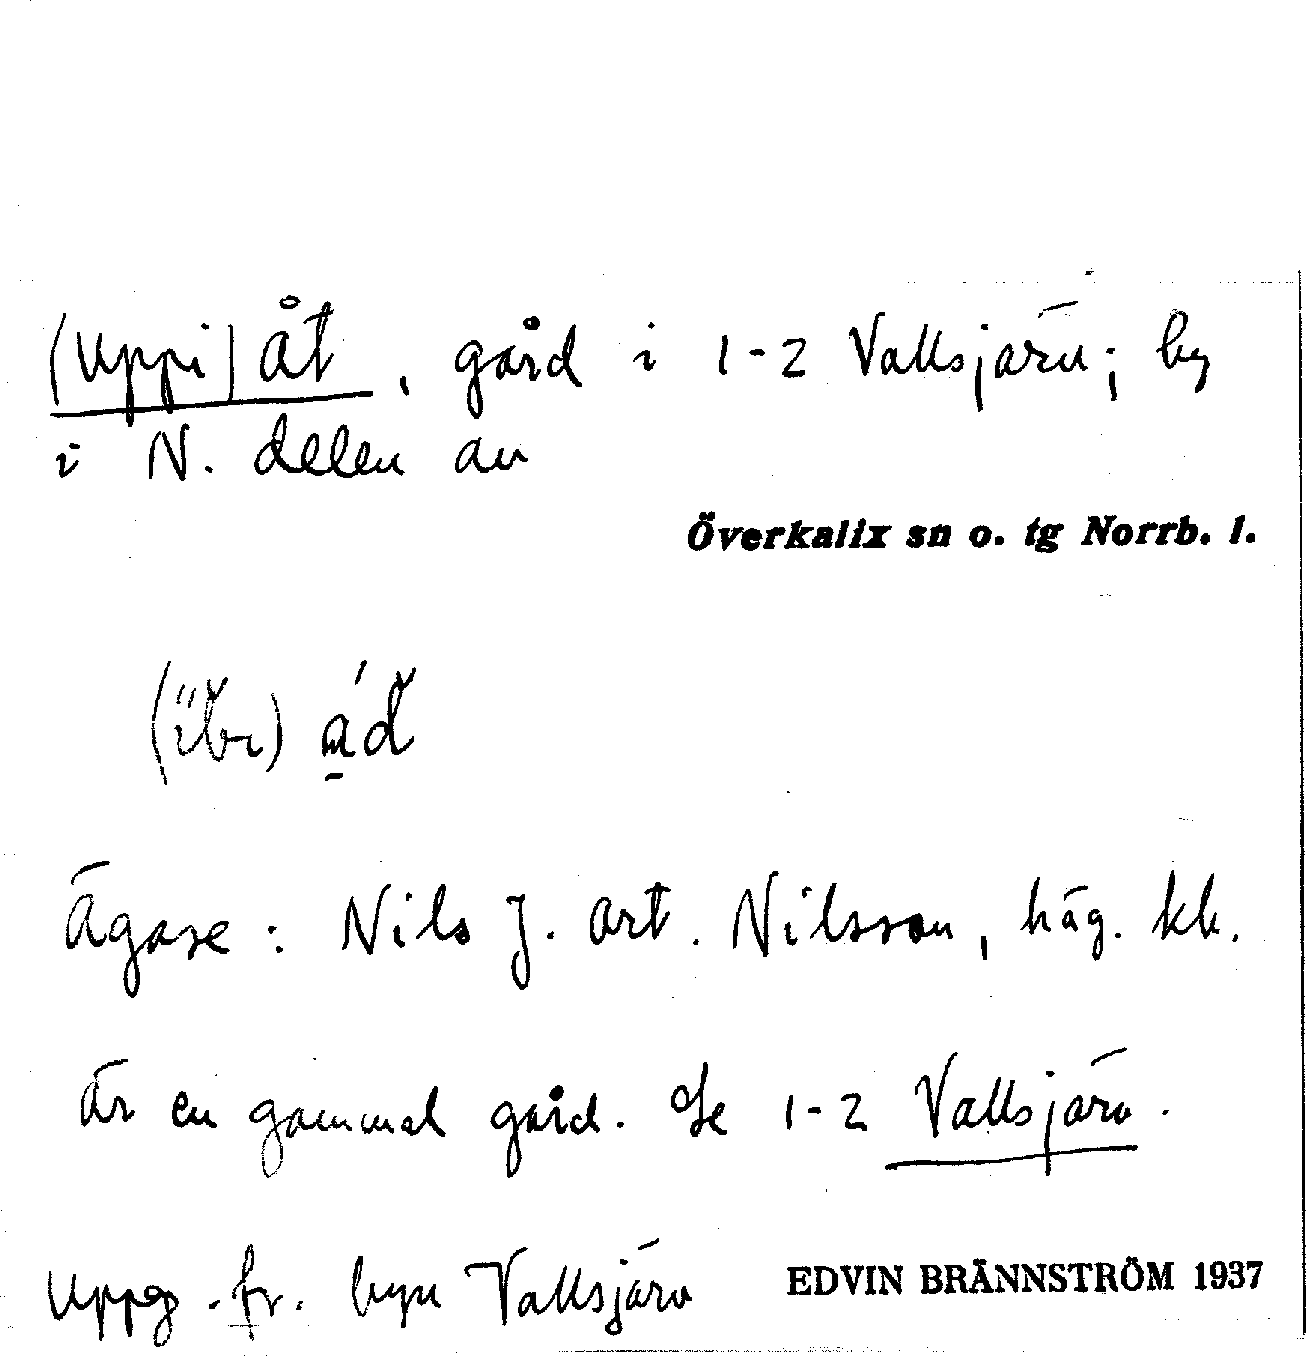 (Uppi) åt, gård i 1-2 Vallsjärv; by
i N. delen av
Överkalix sn o. tg Norrb. l.
Ägare: Nils J. Art. Nilsson, häg. kk.
Är en gammal gård. Se 1-2 Vallsjärv.
Uppg. fr. byn Vallsjärv
EDVIN BRÄNNSTRÖM 1937